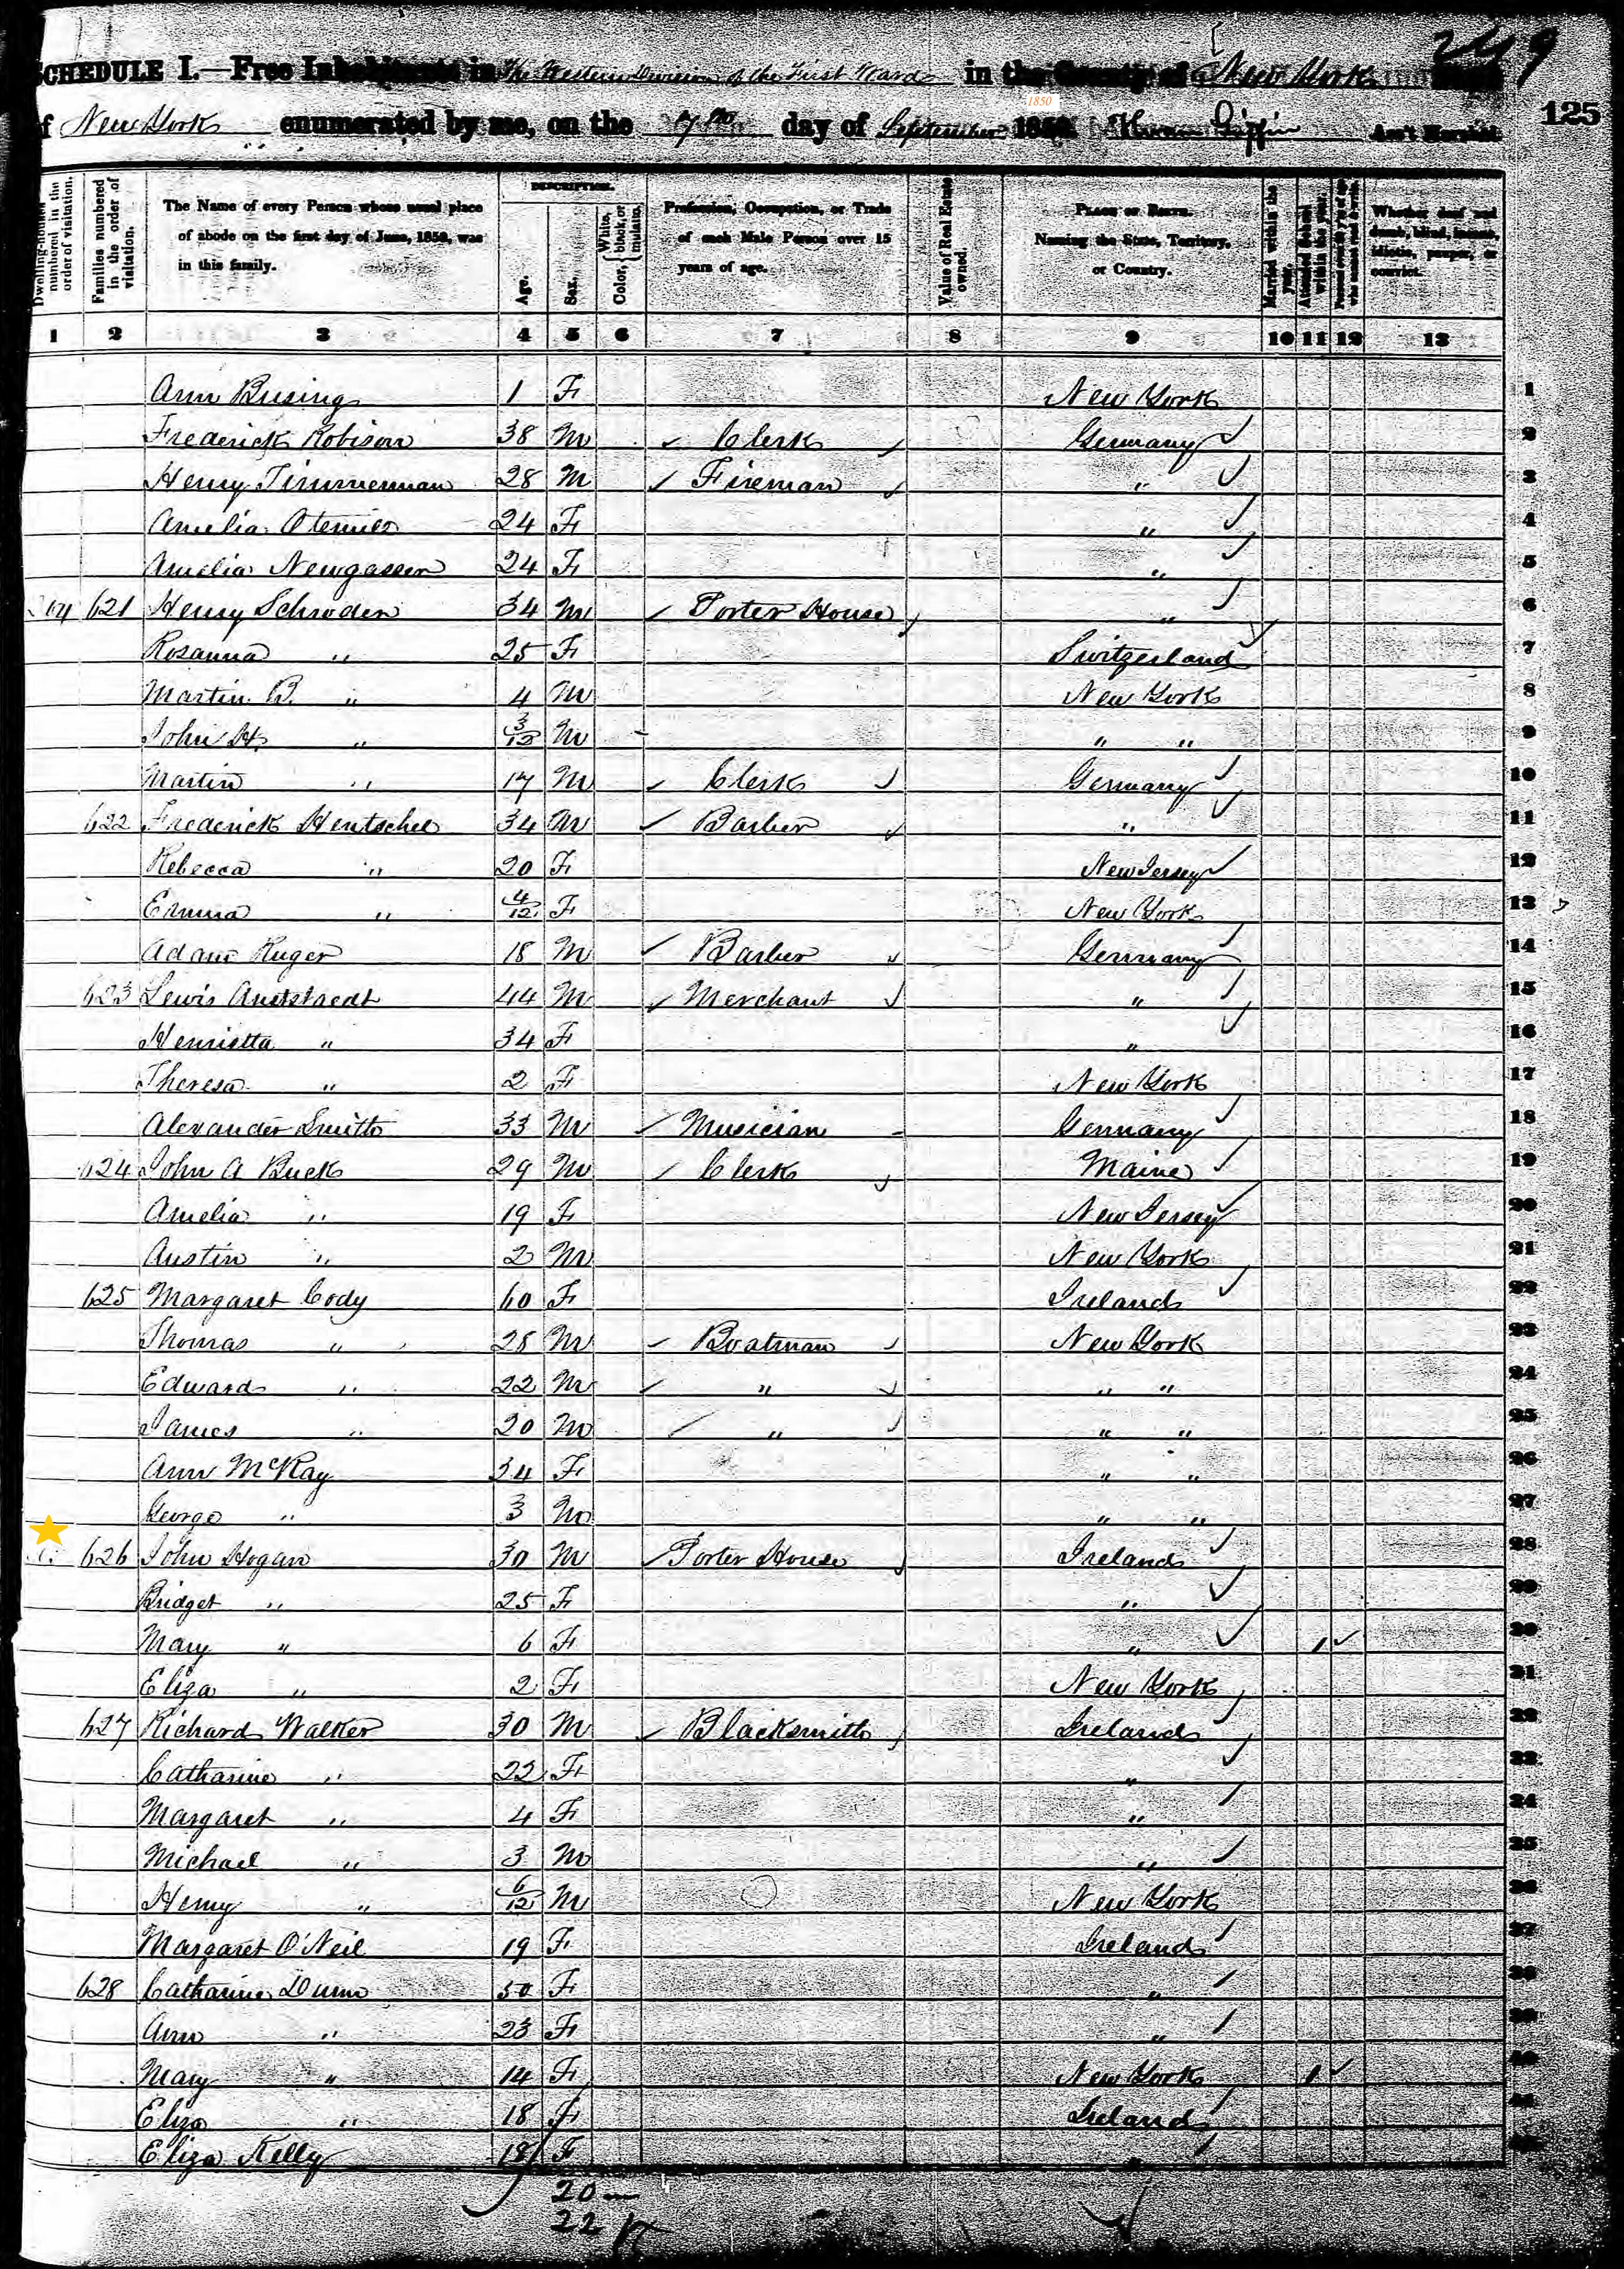 249
SCHEDULE I.—Free Inhabitants in The Western Division of the First Ward in the County of New York
125
of New York enumerated by me, on the 7th day of September 1850. Hiram Giffin Ass't Marshal.
1850
Dwelling-houses numbered in the order of visitation.
Families numbered in the order of visitation.
The Name of every Person whose usual place of abode on the first day of June, 1850, was in this family.
DESCRIPTION.
Age.
Sex.
Color, { White, black, or mulatto.
Profession, Occupation, or Trade of each Male Person over 15 years of age.
Value of Real Estate owned.
PLACE OF BIRTH. Naming the State, Territory, or Country.
Married within the year.
Attended School within the year.
Whether deaf and dumb, blind, insane, idiotic, pauper, or convict.
1 2 3 4 5 6 7 8 9 10 11 12 13
Ann Busing 1 F New York 1
Frederick Robison 38 M Clerk Germany 2
Henry Timmerman 28 M Fireman " 3
Amelia 24 F " 4
Amelia Newgassen 24 F " 5
621 Henry Schroder 34 M Porter House " 6
Rosanna " 25 F Switzerland 7
Martin B. " 4 M New York 8
John H. " 3/12 M " " 9
Martin " 17 M Clerk Germany 10
622 Frederick Hentschel 34 M Barber " 11
Rebecca " 20 F New Jersey 12
Emma " 4/12 F New York 13
Adam Ruger 18 M Barber Germany 14
623 Lewis 44 M Merchant " 15
Henrietta " 34 F " 16
Theresa " 2 F New York 17
Alexander Smith 33 M Musician Germany 18
624 John A Buck 29 M Clerk Maine 19
Amelia " 19 F New Jersey 20
Austin " 2 M New York 21
625 Margaret Cody 60 F Ireland 22
Thomas " 28 M Boatman New York 23
Edward " 22 M " " " 24
James " 20 M " " " 25
Ann McKay 34 F " " 26
George " 3 M " " 27
626 John Hogan 30 M Porter House Ireland 28
Bridget " 25 F " 29
Mary " 6 F " 1 30
Eliza " 2 F New York 31
627 Richard Walker 30 M Blacksmith Ireland 32
Catharine " 22 F " 33
Margaret " 4 F " 34
Michael " 3 M " 35
Henry " 6/12 M New York 36
Margaret O'Neil 19 F Ireland 37
628 Catharine Dunn 50 F " 38
Ann " 23 F " 39
Mary " 14 F New York 1 40
Eliza " 18 F Ireland 41
Eliza Kelly 18 F " 42
20
22